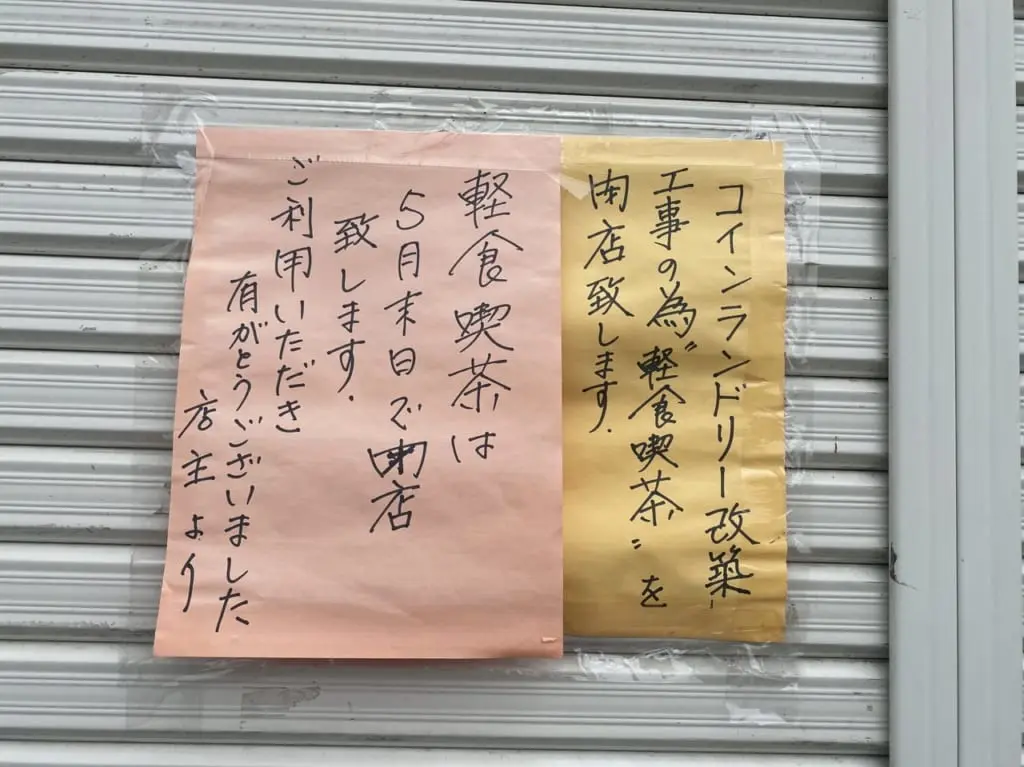 コインランドリー改築
工事の為〝軽食喫茶〟を
閉店致します.
軽食喫茶は
5月末日で閉店
致します.
ご利用いただき
有がとうございました
店主より